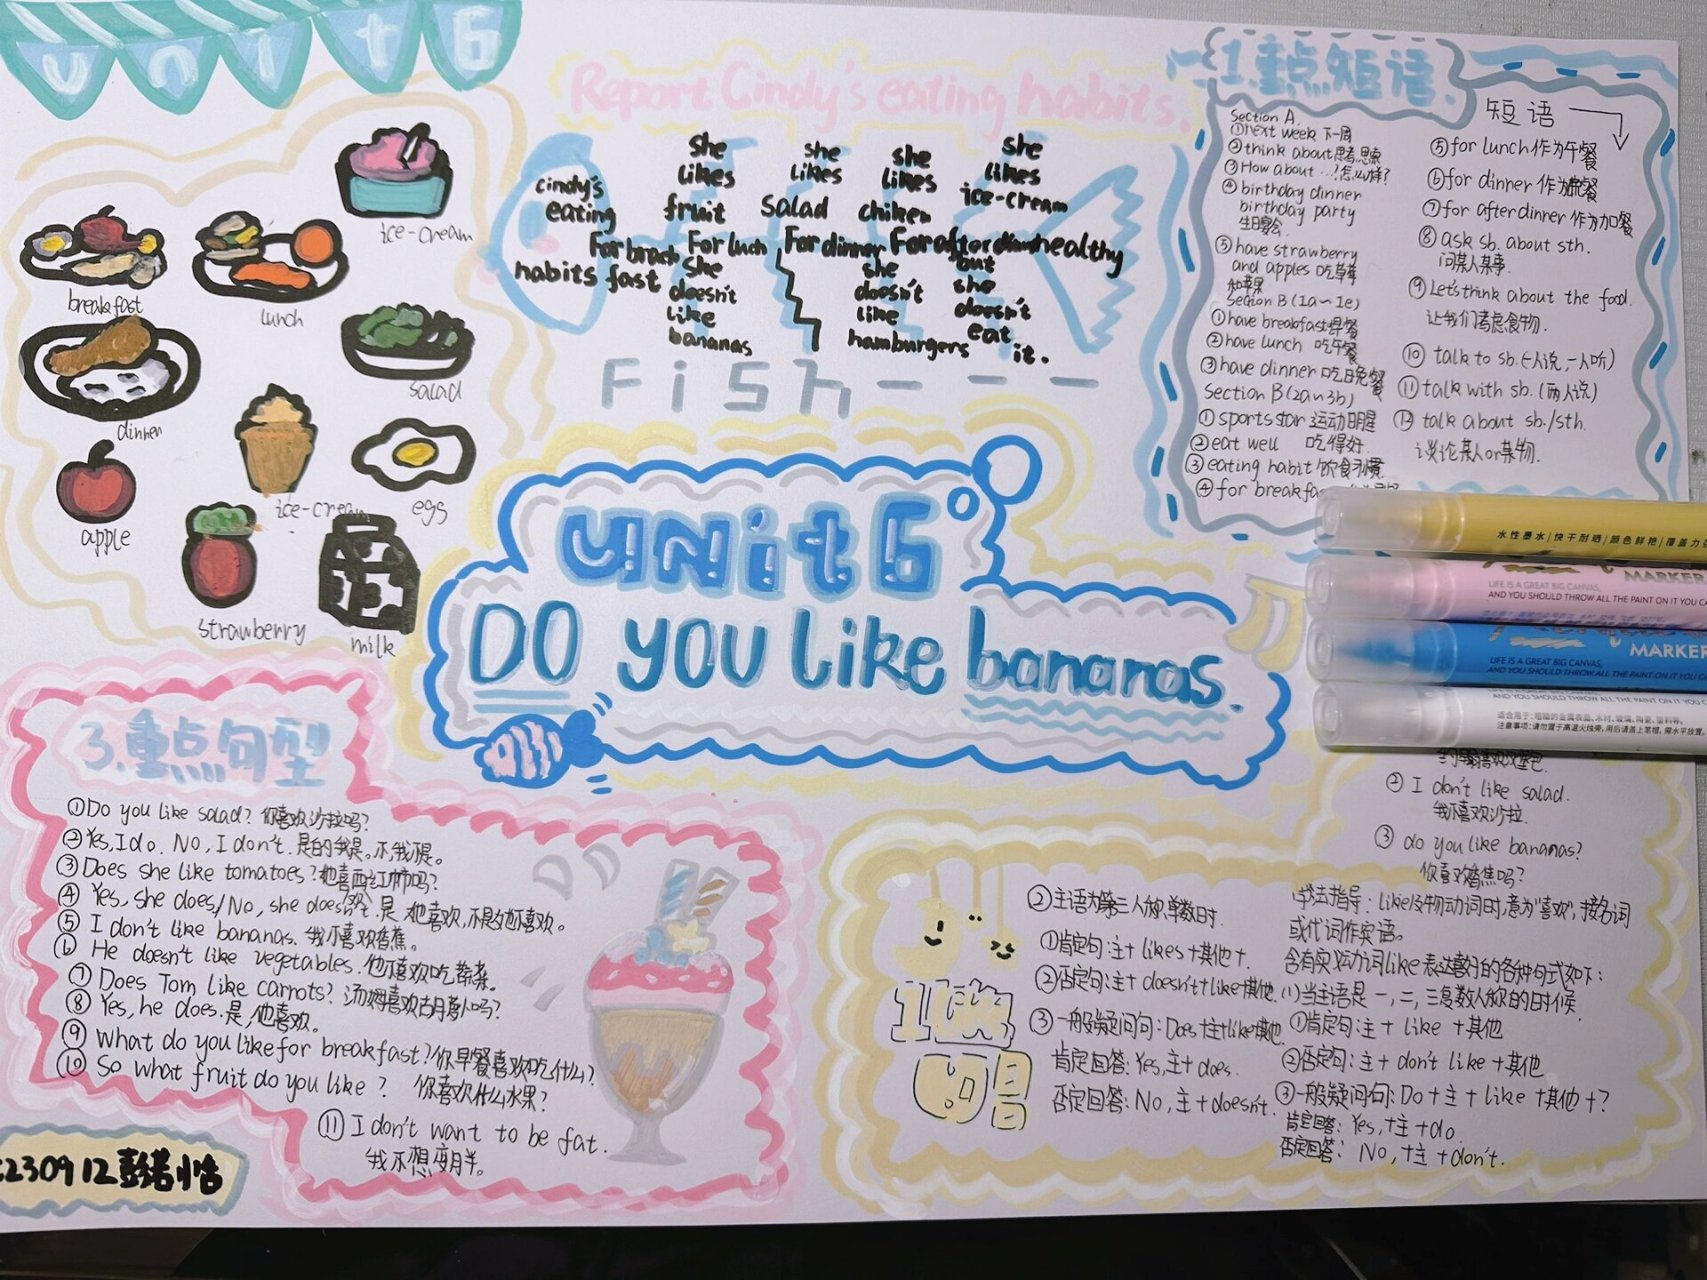 unit 6
Report Cindy's eating habits.
cindy's
eating
habits
she
likes
fruit
she
likes
salad
she
likes
chiken
she
likes
ice-cream
For
fast
For lunch
For dinner
For after
healthy
she
doesn't
like
bananas
she
doesn't
like
hamburgers
but
she
doesn't
eat
it.
Fish----
ice-cream
breakfast
lunch
dinner
salad
apple
ice-cream
egs
strawberry
milk
1.重点短语.
Section A.
①next week 下一周
②think about思考思索
③How about …!怎么样?
④birthday dinner
birthday party
生日宴会.
⑤have strawberry
and apples 吃草莓
和苹果
Section B(1a~1e)
①have breakfast早餐
②have lunch 吃午餐
③have dinner 吃晚餐
Section B(2a~3b)
①sports star 运动明星
②eat well 吃得好.
③eating habit饮食习惯
④for
短语
⑤for lunch作为午餐
⑥for dinner 作为晚餐
⑦for afterdinner作为加餐
⑧ask sb. about sth.
问某人某事.
⑨Let's think about the food.
让我们考虑食物.
⑩talk to sb.(一人说,一人听)
⑪talk with sb.(两人说)
⑫talk about sb./sth.
谈论某人or某物.
unit6
DO you like bananas.
3.重点句型
①Do you like salad? 你喜欢沙拉吗?
②Yes, I do. No, I don't. 是的我是。不,我不是。
③Does she like tomatoes?她喜欢西红柿吗?
④Yes, she does/No, she doesn't.是她喜欢,不是她不喜欢。
⑤I don't like bananas. 我不喜欢香蕉。
⑥He doesn't like vegetables.他不喜欢吃蔬菜。
⑦Does Tom like carrots? 汤姆喜欢胡萝卜吗?
⑧Yes, he does.是,他喜欢。
⑨What do you like for breakfast?你早餐喜欢吃什么?
⑩So what fruit do you like? 你喜欢什么水果?
⑪I don't want to be fat.
我不想变胖。
230912
②I don't like salad.
我不喜欢沙拉.
③do you like bananas?
你喜欢香蕉吗?
②主语为第三人称单数时.
①肯定句:主+likes+其他+.
②否定句:主+doesn't+like+其他.
③一般疑问句:Does+主+like+其他
肯定回答:Yes,主+does.
否定回答:No,主+doesn't.
学法指导:like及物动词时,意为"喜欢",接名词
或代词作宾语。
含有实义动词like表达喜好的各种句式如下:
(1)当主语是一,二,三复数人称的时候.
①肯定句:主+like+其他
②否定句:主+don't like+其他
③一般疑问句:Do+主+like+其他+?
肯定回答:Yes,+主+do.
否定回答:No,+主+don't.
水性墨水|快干耐晒|颜色鲜艳|覆盖力
MARKER
LIFE IS A GREAT BIG CANVAS,
AND YOU SHOULD THROW ALL THE PAINT ON IT YOU CA
MARKER
LIFE IS A GREAT BIG CANVAS,
AND YOU SHOULD THROW ALL THE PAINT ON IT YOU CA
AND YOU SHOULD THROW ALL THE PAINT ON IT YOU